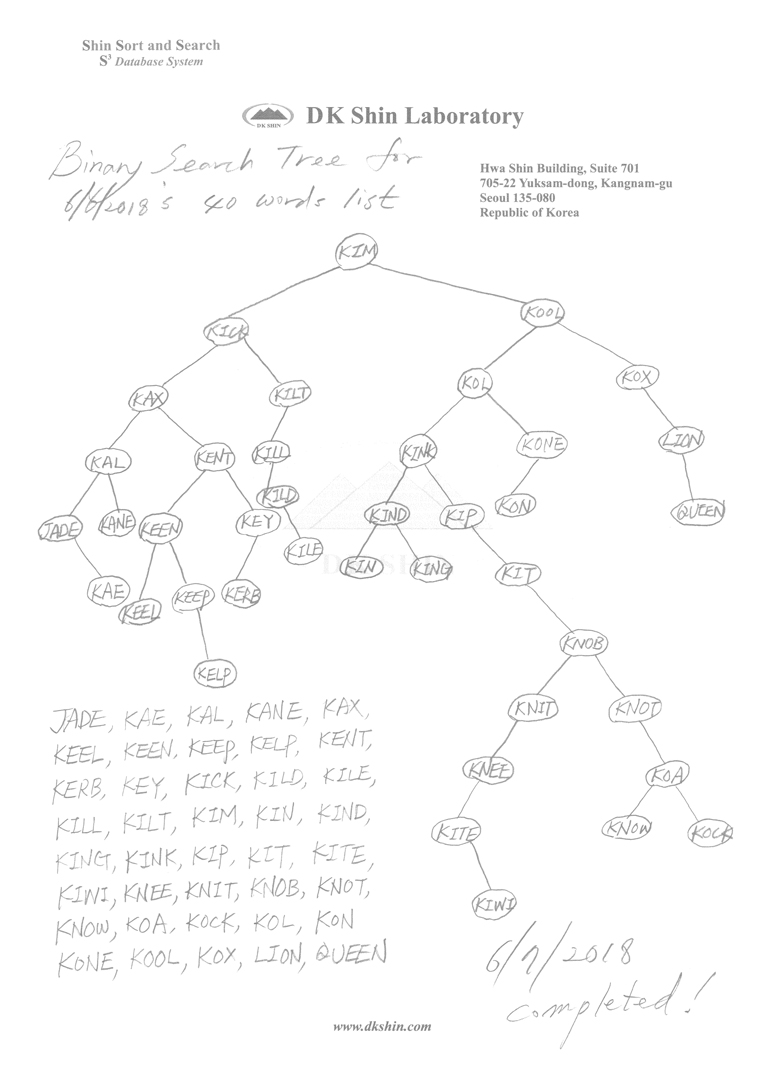 Shin Sort and Search
S³ Database System
DK SHIN
DK Shin Laboratory
Binary Search Tree for
6/6/2018's 40 words list
Hwa Shin Building, Suite 701
705-22 Yuksam-dong, Kangnam-gu
Seoul 135-080
Republic of Korea
KIM
KICK KOOL
KAX KILT KOL KOX
KAL KENT KILL KINK KONE LION
JADE KANE KEEN KEY KILD KIND KIP KON QUEEN
KAE KEEL KEEP KERB KILE KIN KING KIT
DK SHIN
KELP KNOB
KNIT KNOT
KNEE KOA
KITE KNOW KOCK
KIWI
JADE, KAE, KAL, KANE, KAX,
KEEL, KEEN, KEEP, KELP, KENT,
KERB, KEY, KICK, KILD, KILE,
KILL, KILT, KIM, KIN, KIND,
KING, KINK, KIP, KIT, KITE,
KIWI, KNEE, KNIT, KNOB, KNOT,
KNOW, KOA, KOCK, KOL, KON
KONE, KOOL, KOX, LION, QUEEN
6/7/2018
completed!
www.dkshin.com